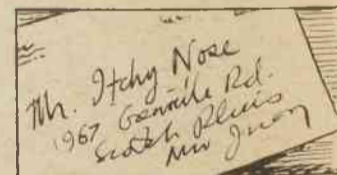 Mr. Itchy Nose
1967 Rd.
Scotch Plains
New Jersey